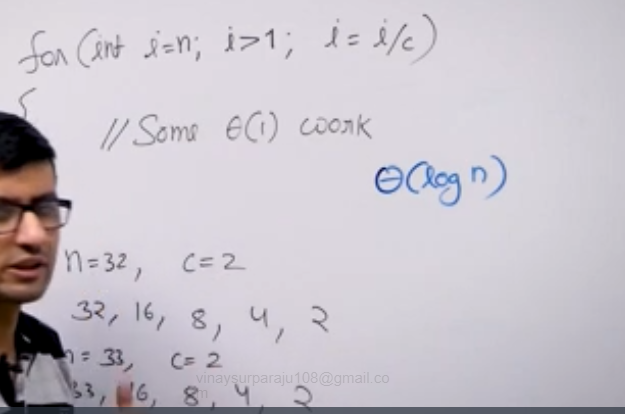 for (int i=n; i>1; i = i/c)
{
// Some θ(1) work
θ(log n)
n=32, c=2
32, 16, 8, 4, 2
n = 33, c=2
vinaysurparaju108@gmail.co
m
33, 16, 8, 4, 2